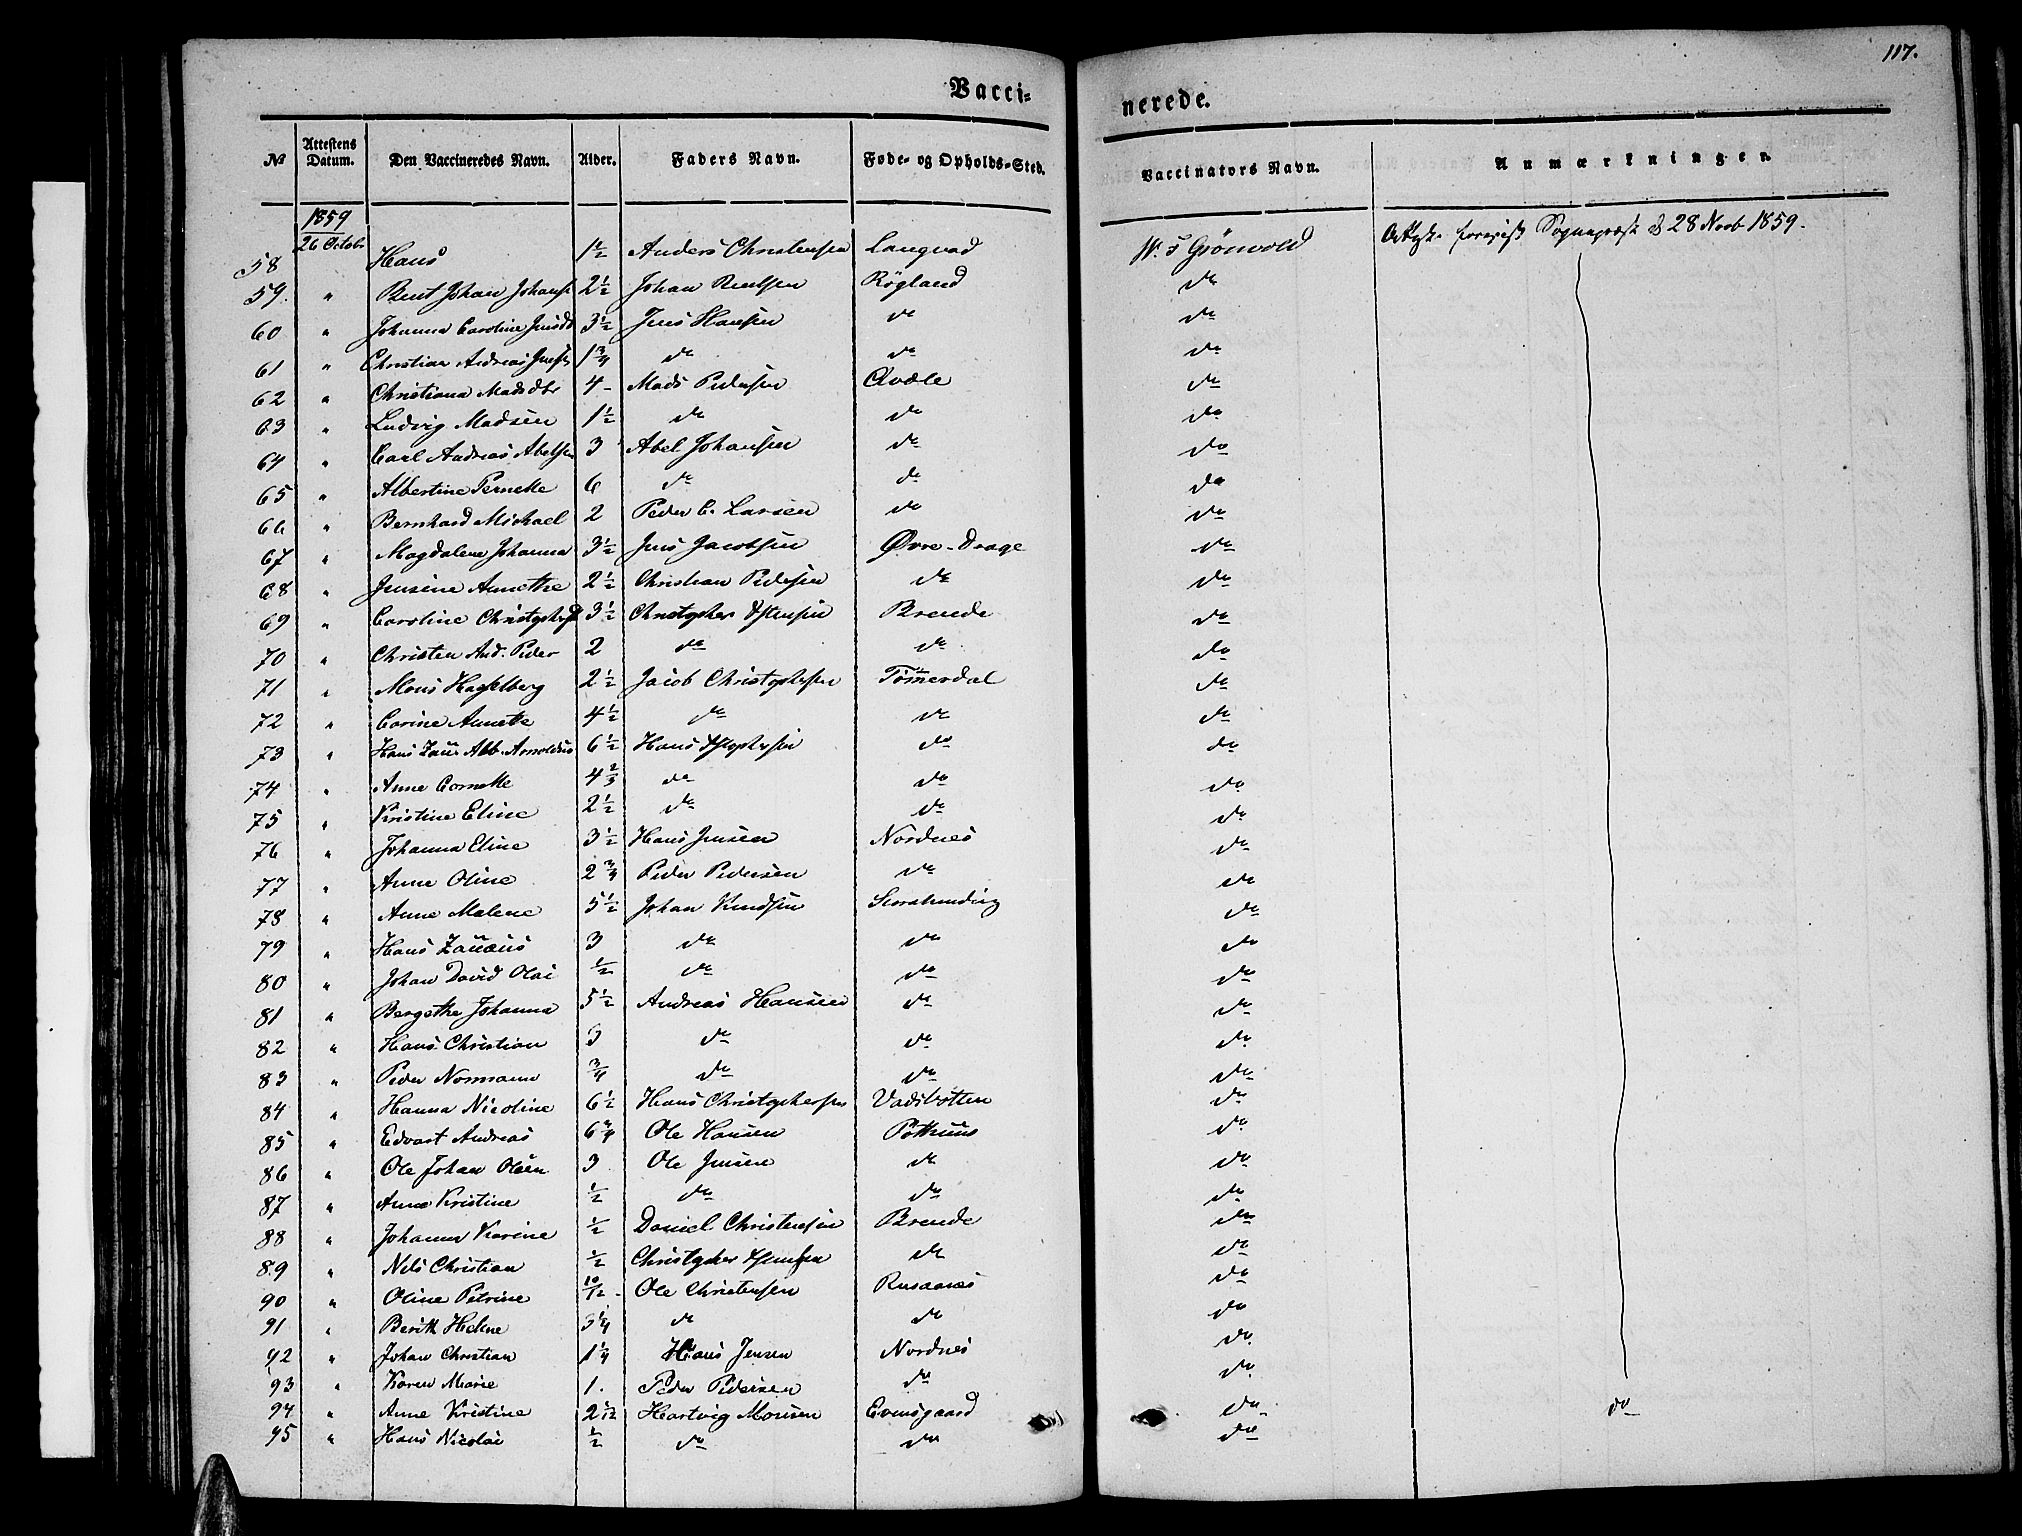 117.
Vaccinerede.
No Attestens Datum. Den Vaccineredes Navn. Alder. Faders Navn. Føde- og Opholds-Sted. Vaccinators Navn. Anmærkninger.
1859
58 26 Octobr Hans 1½ Anders Christensen Langvad W. F Grönvold Sognepræst d 28 Novb 1859.
59. " Bent Johan Johans 2½ Johan Bentsen Røgland do
60 " Johanna Caroline Jensdr 3½ Jens Hansen do do
61 " Christian Andreas Jensen 1¾ do do do
62 " Christiana Madsdtr 4- Mads Pedersen Qvæle do
63 " Ludvig Madsen 1½ do do do
64 " Carl Andreas Abelsen 3 Abel Johansen do do
65 " Albertine Pernelle 6 do do do
66 " Bernhard Michael 2 Peder C. Larsen do do
67 " Magdalene Johanna 3½ Jens Jacobsen Øvre-Drage do
68 " Jensine Annethe 2½ Christian Pedersen do do
69 " Caroline Christophsd 3½ Christopher Stensen Brende do
70 " Christen And. Peder 2 do do do
71 " Mons Hagelberg 2½ Jacob Christophersen Tømmerdal do
72 " Carine Annette 4½ do do do
73 " Hans Alb. Arnoldus 6½ Hans do do
74 " Anne Cornelle 4⅔ do do do
75 " Kristine Eline 2½ do do do
76 " Johanna Eline 3½ Hans Jensen Nordnes do
77 " Anne Oline 2¾ Peder Pedersen do do
78 " Anne Malene 5½ Johan Knudsen do
79 " Hans Zauæus 3 do do do
80 " Johan David Olai ½ do do do
81 " Bergethe Johanna 5½ Andreas Hansen do do
82 " Hans Christian 3 do do do
83 " Peder Normann ¾ do do do
84 " Hanna Nicoline 6½ Hans Christophersen Vadsbotten do
85 " Edvart Andreas 6¾ Ole Hansen Pothuus do
86 " Ole Johan Olsen 3 Ole Jensen do do
87 " Anne Kristine ½ do do do
88 " Johanna Karine ½ Daniel Christensen Brende do
89 " Nels Christian ½ Christopher Stensen do do
90 " Oline Petrine 10/12 - Ole Christensen Rusaanes do
91 " Berith Helene 3¼ do do do
92 " Johan Christian 1¼ Hans Jensen Nordnes do
93 " Karen Marie 1. Peder Pedersen do do
94 " Anne Kristine 2 1/12 Hartvig Monsen Evensgaard do do
95 " Hans Nicolai ½ do do do